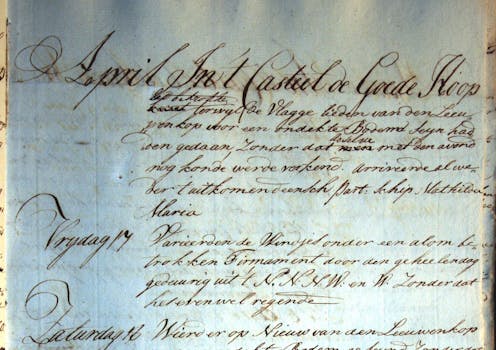 April In't Casteel de Goede Hoop
terwijl De Vlagge lieden van den Leeu-
wenkop voor een ondekte Bodem Seyn had
den gedaan, Zonder dat deselve met den avond
nog konde werde verkend. Arriveerde al we
der t uitkomen deensch Part: schip Mathilda
Maria
Vrijdag 17 Varieerden de Windjes onder een alom be
trokken Firmament door den geheelen dag
gedeurig uit 't N. N. N. W. en W. Zonder dat
het evenwel regende
Zaturdag Wierd er op Nieuw van den Leeuwenkop
Bodem Zonder